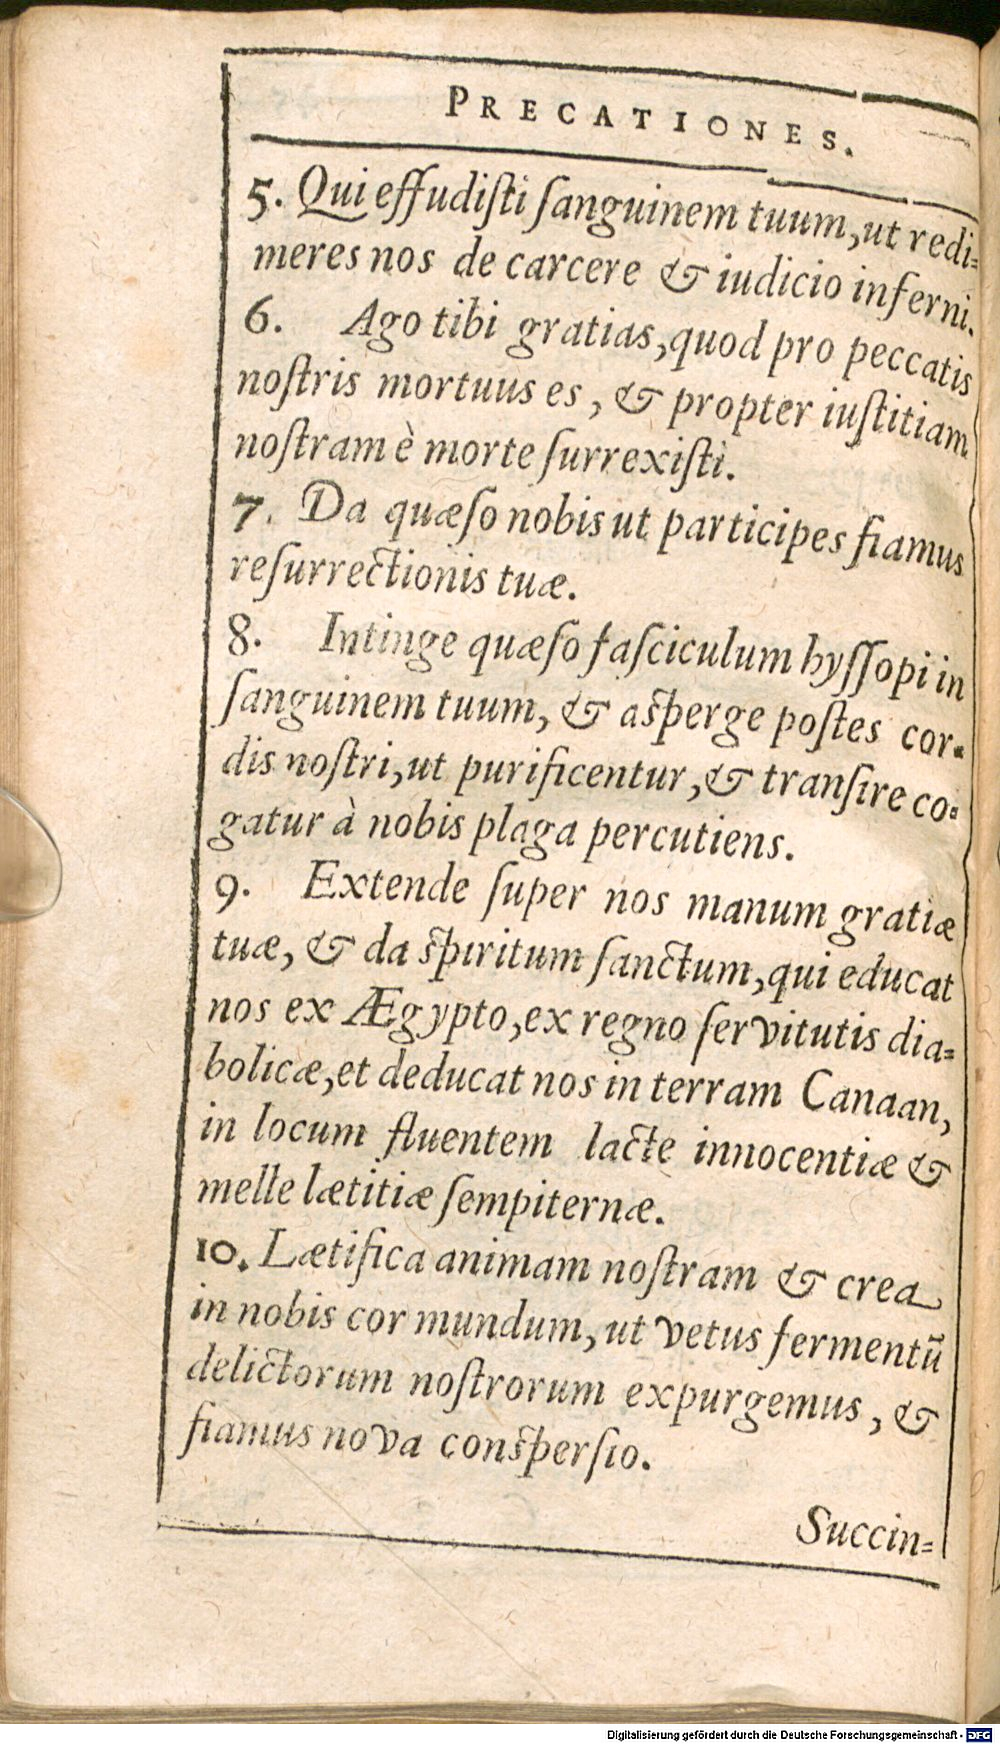 PRECATIONES.
5. Qui effudiſti ſanguinem tuum, ut redi=
meres nos de carcere & iudicio inferni.
6. Ago tibi gratias, quod pro peccatis
noſtris mortuus es, & propter iuſtitiam
noſtram è morte ſurrexiſti.
7. Da quæſo nobis ut participes fiamus
reſurrectionis tuæ.
8. Intinge quæſo faſciculum hyſſopi in
ſanguinem tuum, & aſperge poſtes cor=
dis noſtri, ut purificentur, & tranſire co=
gatur à nobis plaga percutiens.
9. Extende ſuper nos manum gratiæ
tuæ, & da ſpiritum ſanctum, qui educat
nos ex Ægypto, ex regno ſervitutis dia=
bolicæ, et deducat nos in terram Canaan,
in locum fluentem lacte innocentiæ &
melle lætitiæ ſempiternæ.
10. Lætifica animam noſtram & crea
in nobis cor mundum, ut vetus fermentũ
delictorum noſtrorum expurgemus, &
fiamus nova conſperſio.
Succin=
Digitalisierung gefördert durch die Deutsche Forschungsgemeinschaft - DFG